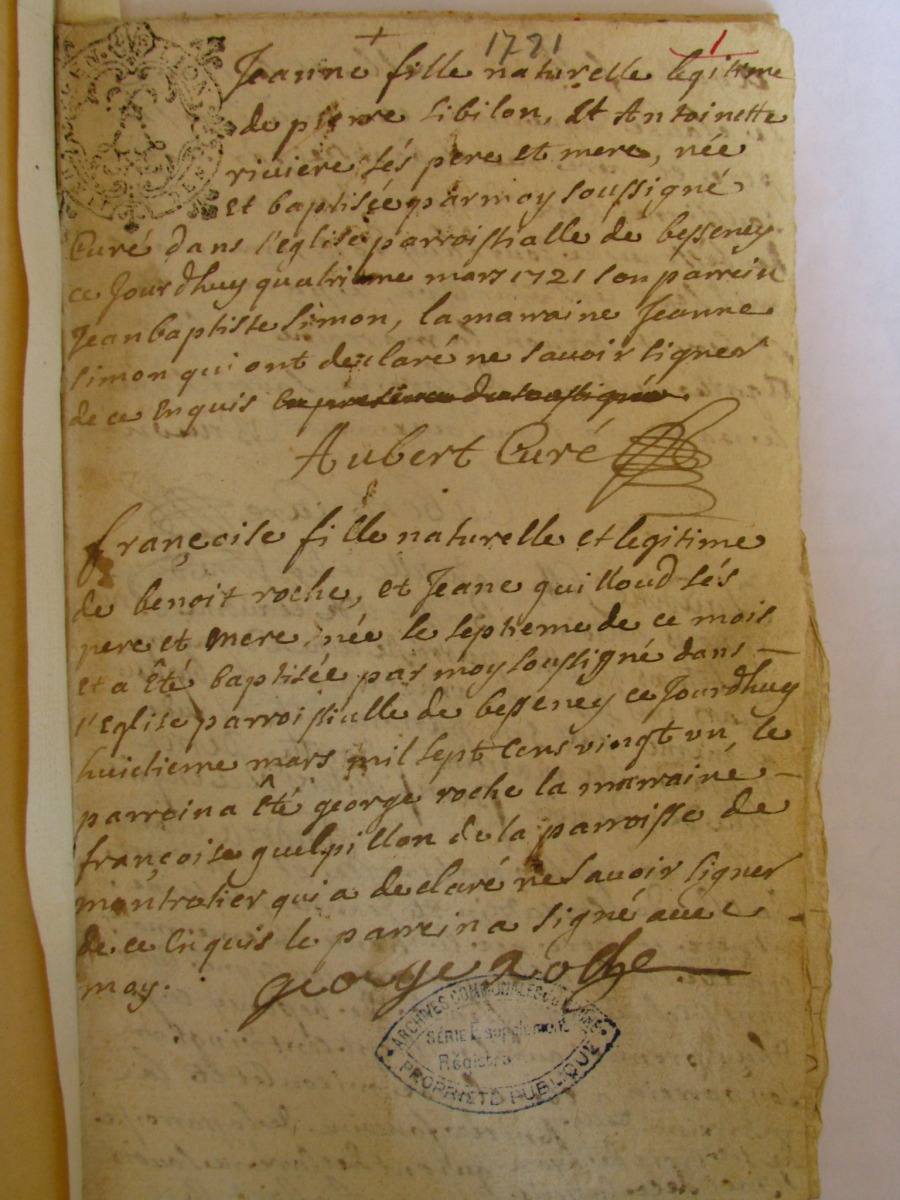 1721
1
Jeanne fille naturelle legitime
de pierre Sibilon, Et Antoinette
riviere sés pere et mere, née
et baptisée par moy soussigné
Curé dans l'eglise parroissialle de besseney
ce Jourdhuy quatrieme mars 1721 son parrein
Jean baptiste simon, la marraine Jeanne
simon qui ont declaré ne savoir signer
de ce Enquis
Aubert Curé
françoise fille naturelle et legitime
de benoit roche, et Jeane quilloud sés
pere et mere née le septieme de ce mois
et a été baptisée par moy soussigné dans
l'Eglise parroissialle de besseney ce Jourdhuy
huictieme mars mil sept Cens vingt un, le
parrein a été george roche la marraine
françoise guelpillon de la parroisse de
montrotier qui a declaré ne savoir signer
de ce Enquis le parrein a signé avec
moy.
george roche
ARCHIVES COMMUNALES
SÉRIE E supplément
Registre
PROPRIÉTÉ PUBLIQUE